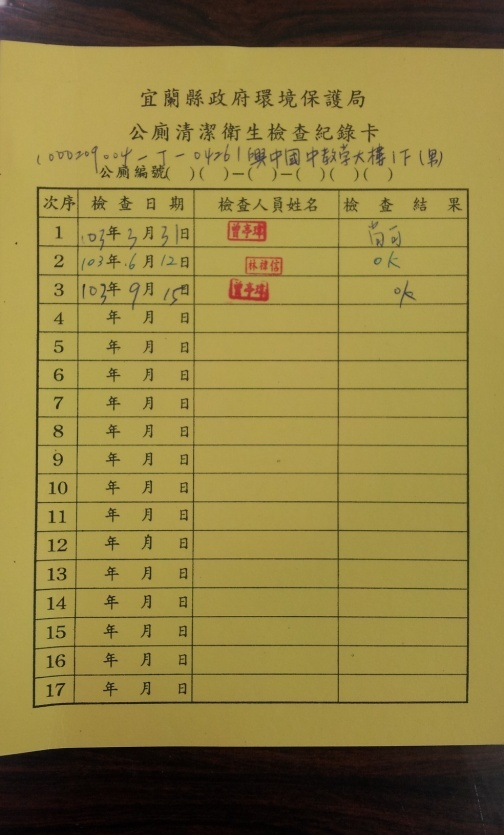 宜蘭縣政府環境保護局
公廁清潔衛生檢查紀錄卡
1000209004-T-04261興中國中教學大樓1F(男)
公廁編號( )( )-( )-( )( )( )
次序 檢查日期 檢查人員姓名 檢查結果
1 103年3月31日 曾亭瑋 尚可
2 103年6月12日 林禕信 OK
3 103年9月15日 曾亭瑋 ok
4 年 月 日
5 年 月 日
6 年 月 日
7 年 月 日
8 年 月 日
9 年 月 日
10 年 月 日
11 年 月 日
12 年 月 日
13 年 月 日
14 年 月 日
15 年 月 日
16 年 月 日
17 年 月 日